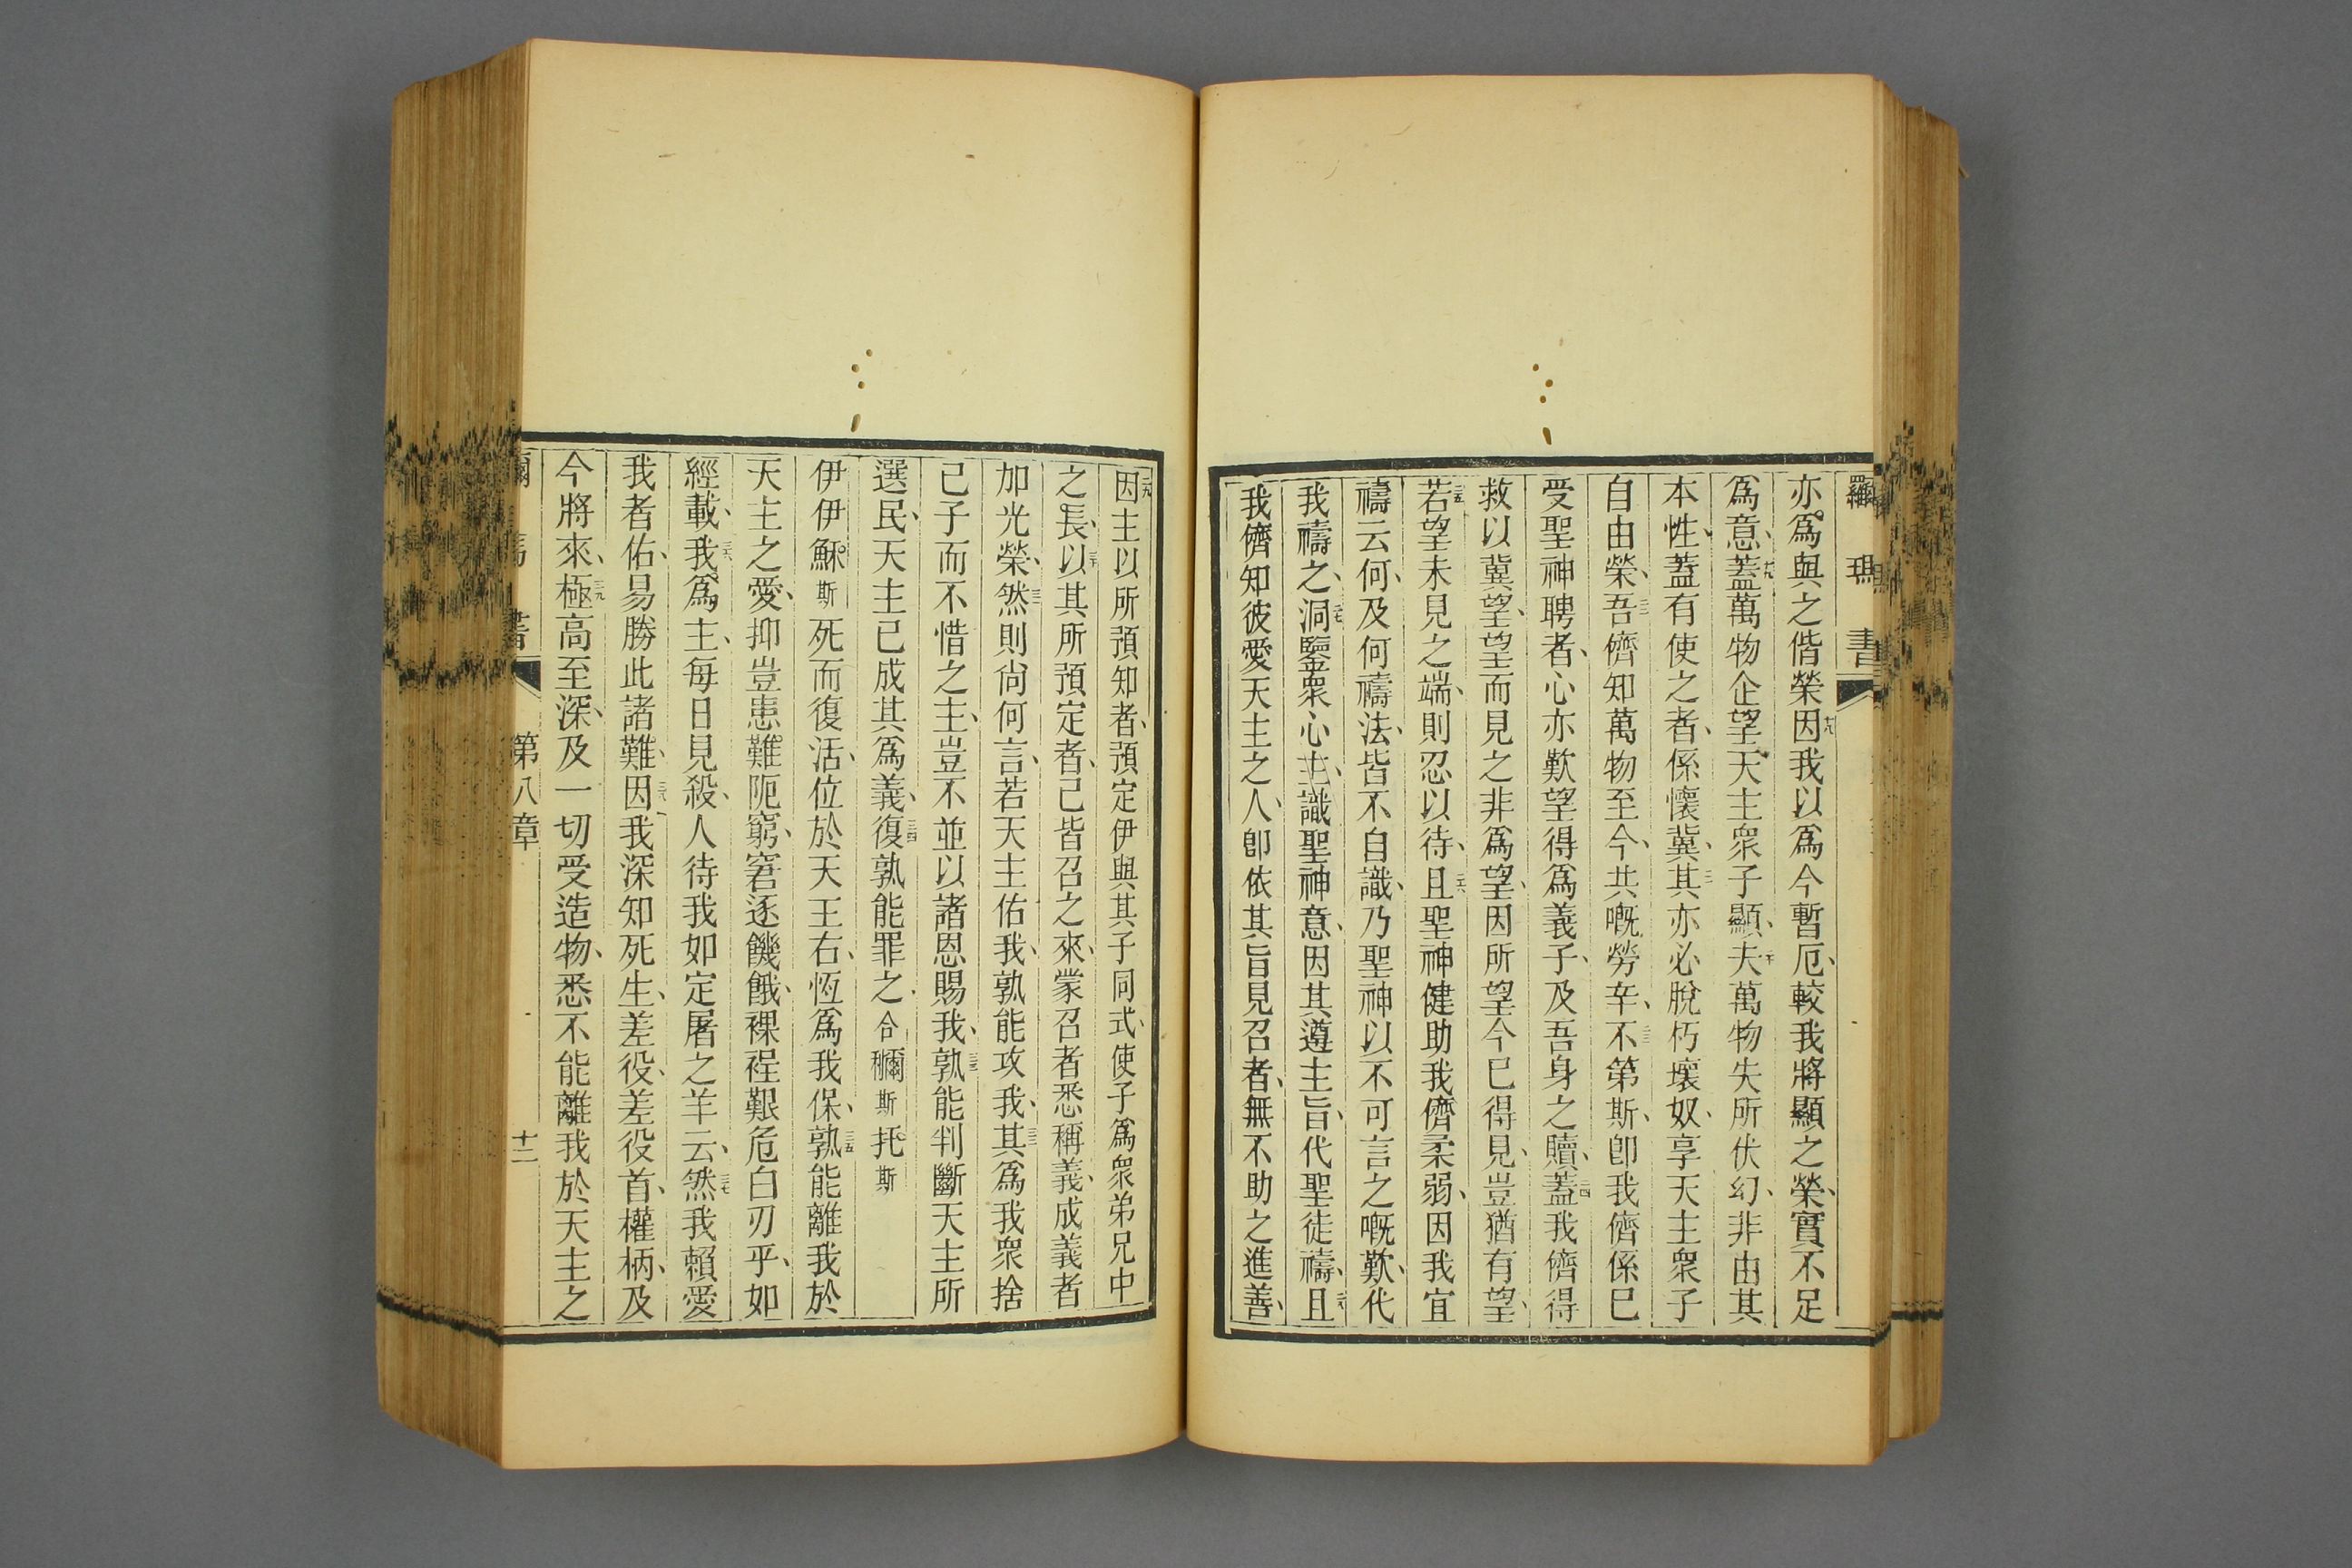 羅瑪書
亦爲與之偕榮十八因我以爲今暫厄較我將顯之榮實不足
爲意十九蓋萬物企望天主衆子顯二十夫萬物失所伏幻非由其
本性蓋有使之者係懷冀二一其亦必脫朽壞奴享天主衆子
自由榮二二吾儕知萬物至今共嘅勞辛二三不第斯卽我儕係已
受聖神聘者心亦歎望得爲義子及吾身之贖二四蓋我儕得
救以冀望望而見之非爲望因所望今已得見豈猶有望
二五若望未見之端則忍以待二六且聖神健助我儕柔弱因我宜
禱云何及何禱法皆不自識乃聖神以不可言之嘅歎代
我禱之二七洞鑒衆心主識聖神意因其遵主旨代聖徒禱二八且
我儕知彼愛天主之人卽依其旨見召者無不助之進善
二九因主以所預知者預定伊與其子同式使子爲衆弟兄中
之長三十以其所預定者已皆召之來蒙召者悉稱義成義者
加光榮三一然則尙何言若天主佑我孰能攻我三二其爲我衆捨
己子而不惜之主豈不並以諸恩賜我三三孰能判斷天主所
選民天主已成其爲義三四復孰能罪之合穪斯托斯
伊伊穌斯死而復活位於天主右恆爲我保三五孰能離我於
天主之愛抑豈患難阨窮窘逐饑餓裸裎艱危白刃乎如
經載三六我爲主每日見殺人待我如定屠之羊云三七然我賴愛
我者佑易勝此諸難三八因我深知死生差役差役首權柄及
今將來三九極高至深及一切受造物悉不能離我於天主之
書 第八章 十二